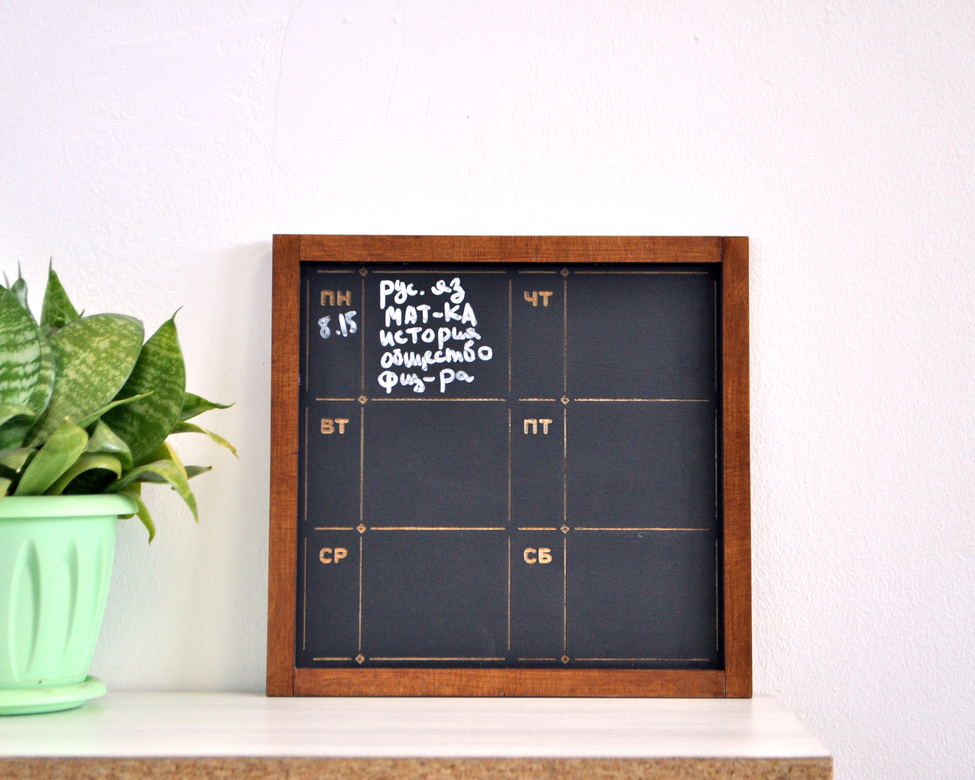 ПН
8.15
рус. яз
МАТ-КА
история
общество
физ-ра
ЧТ
ВТ
ПТ
СР
СБ